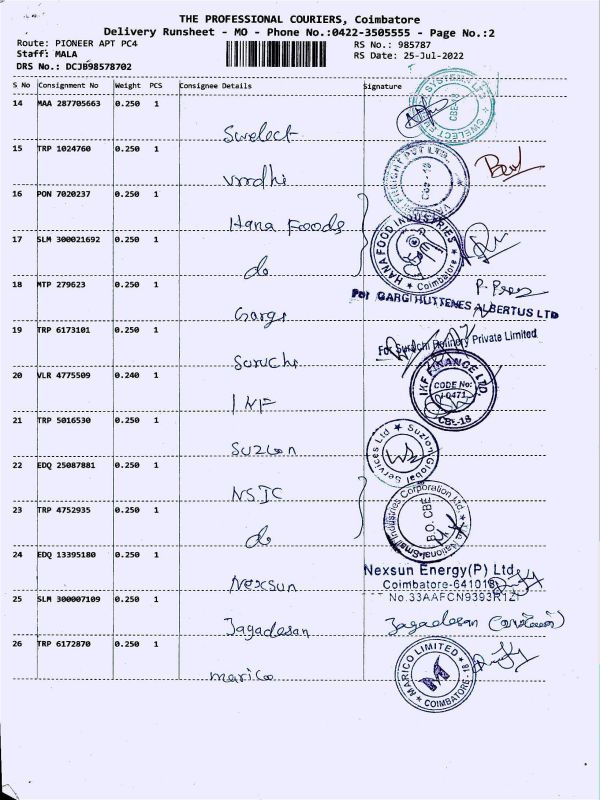 THE PROFESSIONAL COURIERS, Coimbatore
Delivery Runsheet - MO - Phone No.:0422-3505555 - Page No.:2
Route: PIONEER APT PC4 RS No.: 985787
Staff: MALA RS Date: 25-Jul-2022
DRS No.: DCJB98578702
S No Consignment No Weight PCS Consignee Details Signature
14 MAA 287705663 0.250 1
Swelect
CBE-18
15 TRP 1024760 0.250 1
Vardhi
CBE-18
16 PON 7020237 0.250 1
Hana Foods
HANA FOOD INDUSTRIES * Coimbatore *
17 SLM 300021692 0.250 1
do
18 MTP 279623 0.250 1
Gargi
For GARGI HUTTENES ALBERTUS LTD
19 TRP 6173101 0.250 1
Suruchi
For Suruchi Refinery Private Limited
20 VLR 4775509 0.240 1
INF
IKF FINANCE LTD.
CODE No:
I-0471
CBE-18
21 TRP 5016530 0.250 1
Suzlon
Suzlon Global Services Ltd
22 EDQ 25087881 0.250 1
NSIC
National Small Industries Corporation Ltd.
B.O. CBE
23 TRP 4752935 0.250 1
do
24 EDQ 13395180 0.250 1
Nexsun
Nexsun Energy(P) Ltd
Coimbatore-641018
No.33AAFCN9393R1ZI
25 SLM 300007109 0.250 1
Jagadesan
Jagadesan
26 TRP 6172870 0.250 1
marico
MARICO LIMITED * COIMBATORE - 18 *
M